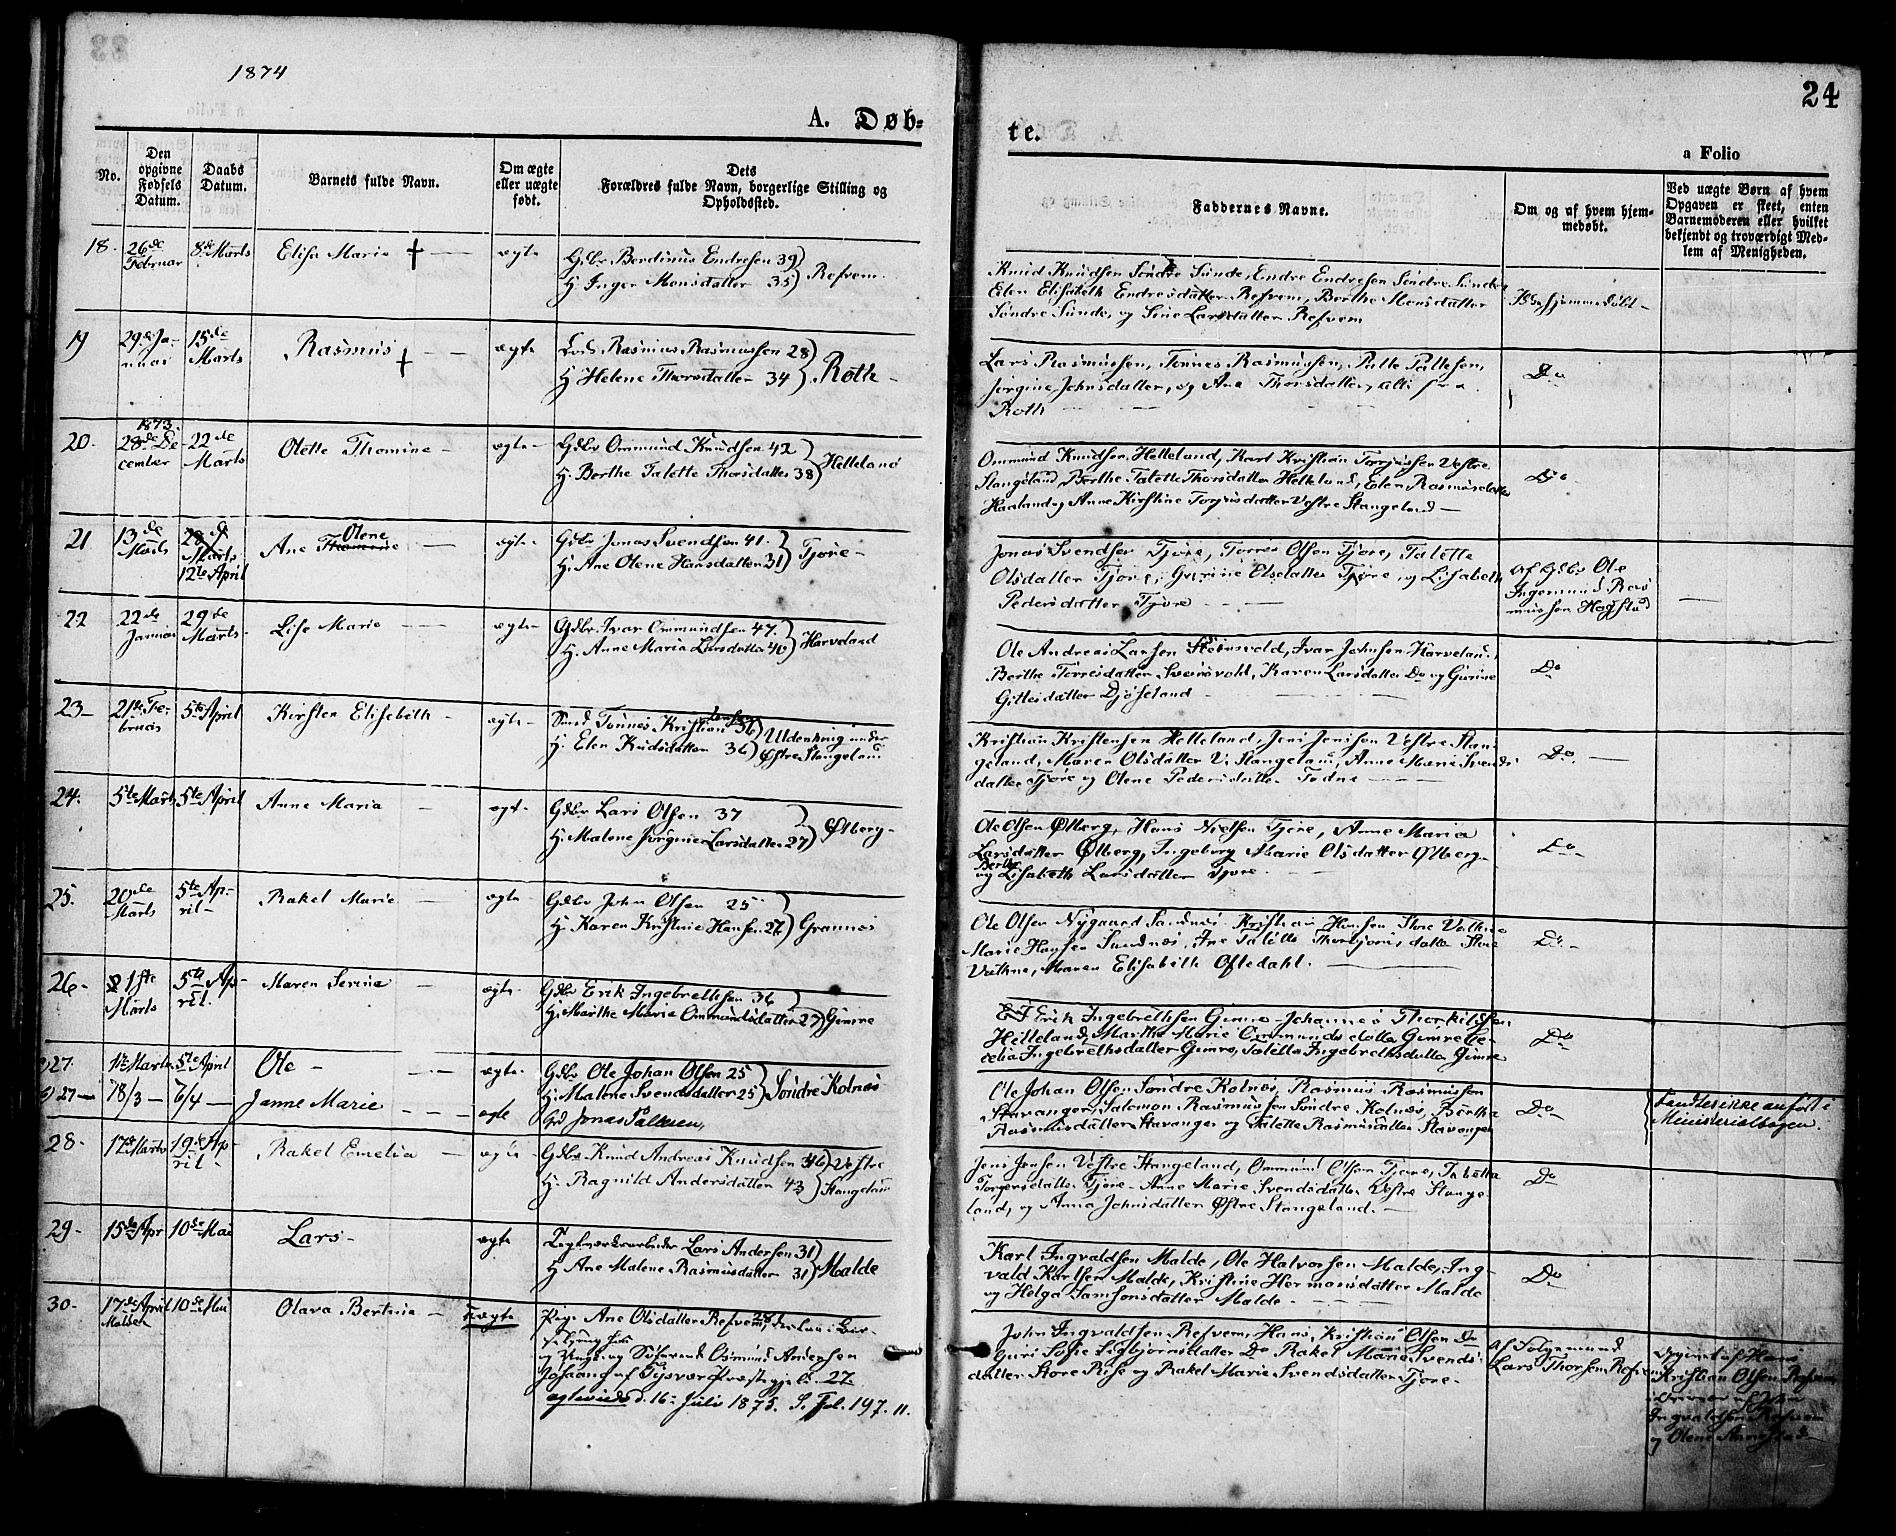 1874
24
A. Døb-
te.
a Folio
No.
Den
opgivne
Fødsels
Datum.
Daabs
Datum.
Barnets fulde Navn.
Om ægte
eller uægte
født.
Dets
Forældres fulde Navn, borgerlige Stilling og
Opholdssted.
Faddernes Navne.
Om og af hvem hjem-
medøbt.
Ved uægte Børn af hvem
Opgaven er skeet, enten
Barnemoderen eller hvilket
bekjendt og troværdigt Med-
lem af Menigheden.
18.
26de
Februar
8de Marts
Elisa Marie †
ægte
Gdbr Berdinus Endresen 39
H. Inger Monsdatter 35
Refvem
Knud Knudsen Søndre Sunde, Endre Endresen Søndre Sunde
Elen Elisabeth Endresdatter Refvem, Berthe Monsdatter
Søndre Sunde, og Sine Larsdatter Refvem
Ikke hjemmedøbt
19
29de Ja-
nuar
15de
Marts
Rasmus †
ægte
Rasmus Rasmussen 28
H Helene Thorsdatter 34
Roth
Lars Rasmussen, Tønnes Rasmussen, Palle Pallesen,
Jørgine Johnsdatter, og Ane Thorsdatter, alle fra
Roth
Do
20.
1873.
28de De-
cember
22de
Marts
Olette Thomine
ægte
Gdbr Ommund Knudsen 42
H. Berthe Talette Thorsdatter 38
Helleland
Ommund Knudsen Helleland, Karl Kristian Torjussen Vestre
Stangeland, Berthe Talette Thorsdatter Helleland, Elen Rasmusdatter
Haaland og Anne Kirstine Torjusdatter Vestre Stangeland
Do
21
13de
Marts
28de
Marts
12te April
Olene
Ane Thomine
ægte
Gdbr Jonas Svendsen 41.
H. Ane Olene Hansdatter 31
Tjøre
Jonas Svendsen Tjøre, Torres Olsen Tjøre, Talette
Olsdatter Tjøre, Gurine Olsdatter Tjøre og Lisabeth
Pedersdatter Tjøre
Af Gdbr Ole
Ingemund Ras
mussen Hogstad
22
22de
Januar
29de
Marts
Lise Marie
ægte
Gdbr. Ivar Ommundsen 47.
H. Anne Maria Larsdatter 40
Harveland
Ole Andreas Larsen Sømsvold, Ivar Johnsen Harveland,
Berthe Torresdatter Sømsvold, Karen Larsdatter Do og Gurine
Gittlesdatter Djøseland
Do
23
21de Fe-
bruar
5te April
Kirsten Elisabeth
ægte
Smed. Tønnes Kristian Jensen 36
H. Elen Knudsdatter 36
Uldenkring under
Østre Stangeland
Kristian Kristensen Helleland, Jens Jensen Vestre Stan-
geland, Maren Olsdatter V. Stangeland, Anne Marie Svends-
datter Tjøre og Olene Pedersdatter Todne
Do
24.
5te Marts
5te April
Anne Maria
ægte
Gdbr Lars Olsen 37
H. Malene Jørgine Larsdatter 27
Ølberg
Ole Olsen Ølberg, Hans Nielsen Tjøre, Anne Maria
Larsdatter Ølberg, Ingeborg Marie Olsdatter Ølberg
Berthe
og Lisabeth Larsdatter Tjøre.
Do
25.
20de
Marts
5te Ap-
ril
Rakel Marie
ægte
Gdbr John Olsen 25
H. Karen Kristine Hansen 27
Grannes
Ole Olsen Nygaard Sandnes, Kristian Hansen Store Vathne
Marie Hansen Sandnes, Ane Talette Thorbjørnsdatter Store
Vathne, Maren Elisabeth Oftedahl.
Do
26
21ste
Marts
5te Ap-
ril.
Maren Serine
ægte
Gdbr Erik Ingebrethsen 36
H. Marthe Marie Ommundsdatter 27
Gimre
Erik Ingebrethsen Gimre, Johannes Thorkildsen
Helleland, Marthe Marie Ommundsdatter Gimre Ce-
celia Ingebrethsdatter Gimre, Talette Ingebrethsdatter Gimre
Do
a) 27.
11te Marts
5te April
Ole
ægte
Gdbr Ole Johan Olsen 25
H. Malene Svendsdatter 25
Søndre Kolnes
b) 27
18/3
6/4
Janne Marie
ægte
Gd Jonas Pallesen,
Ole Johan Olsen Søndre Kolnes, Rasmus Rasmussen
Stavanger, Salomon Rasmussen Søndre Kolnes, Bertha
Rasmusdatter Stavanger og Talette Rasmusdatter Stavanger
Do
Fandtes ikke anført i
Ministerialbogen.
28
17de Marts
19de Ap-
ril
Rakel Emelia
ægte
Gdbr Knud Andreas Knudsen 46
H. Ragnild Andersdatter 43
Vestre
Stangeland
Jens Jensen Vestre Stangeland, Ommund Olsen Tjøre, Tabetha
Torgersdatter Tjøre, Anne Marie Svendsdatter Vestre Stange-
land, og Anna Johnsdatter Østre Stangeland.
Do
29
15de Apr
10de Mai
Lars
ægte
Teglværksarbeider Lars Andersen 31
H Ane Malene Rasmusdatter 31
Malde
Karl Ingvaldsen Malde, Ole Halvorsen Malde, Ing-
vald Karlsen Malde, Kristine Hermansdatter Malde
og Helga Samsonsdatter Malde
Do
30
17de April
10de Mai
Olava Bertine
Uægte
Pige Ane Olsdatter Refvem
og Ungk. og Søfarende Osmund Andersen
Josaang af Tysvær Præstegjeld. 27.
ægteviede d. 16. Juli 1875. S. Fol. 197. 11.
John Ingvaldsen Refvem, Hans Kristian Olsen Do
Guri Sofie Sigbjørnsdatter Do Rakel Marie Svends-
datter Store Risse og Rakel Marie Svendsdatter Tjøre
Af Følgemand
Lars Thorsen Refvem
Opgivet af Hans
Kristian Olsen Refvem
Ingvaldsen Refvem
og Olene